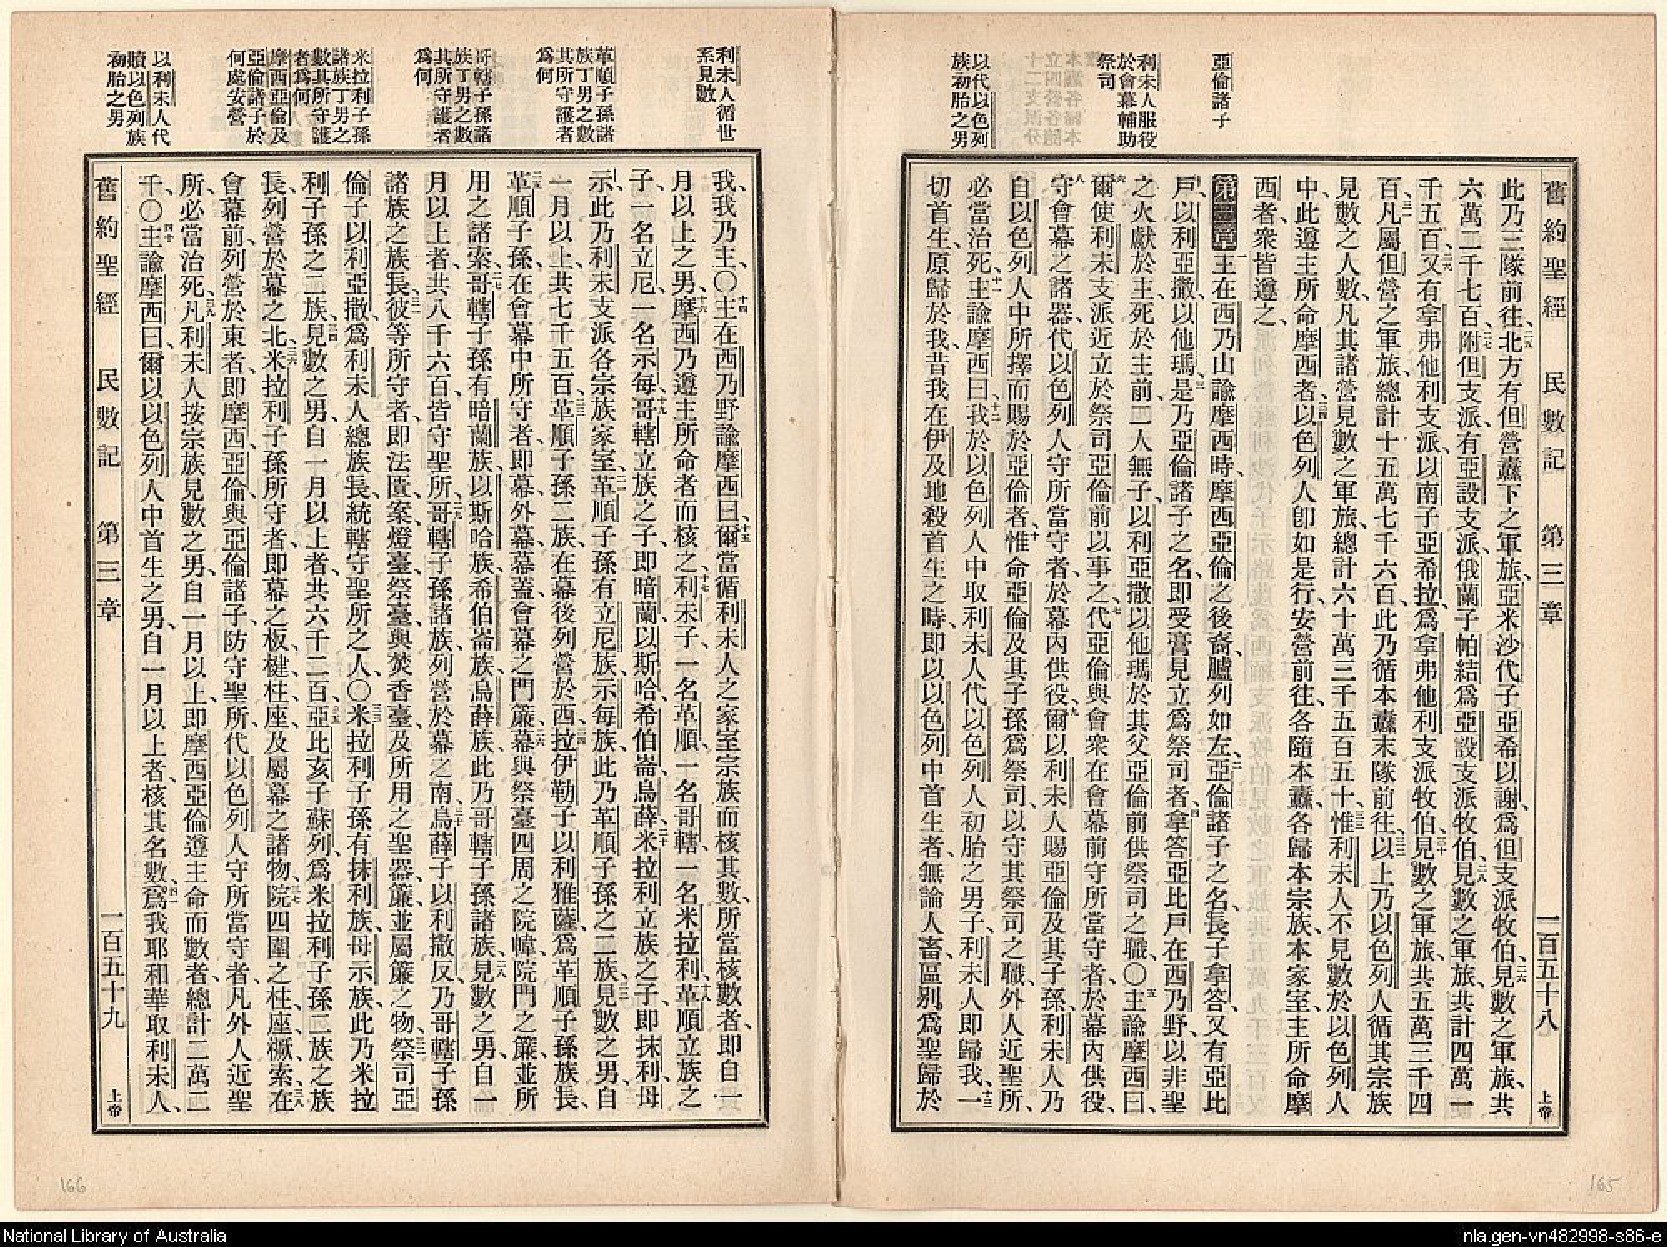 舊約聖經 民數記 第三章 一百五十八 上帝
亞倫諸子
利未人服役
於會幕輔助
祭司
以代以色列
族初胎之男
此乃三隊前往、北方有但營纛下之軍旅、亞米沙代子亞希以謝、爲但支派牧伯、見數之軍旅、共
六萬二千七百、附但支派有亞設支派、俄蘭子帕結爲亞設支派牧伯、見數之軍旅、共計四萬一
千五百、又有拿弗他利支派、以南子亞希拉爲拿弗他利支派牧伯、見數之軍旅、共五萬三千四
百、凡屬但營之軍旅、總計十五萬七千六百、此乃循本纛末隊前往、以上乃以色列人循其宗族
見數之人數、凡其諸營見數之軍旅、總計六十萬三千五百五十、惟利未人不見數於以色列人
中、此遵主所命摩西者、以色列人卽如是行、安營前往、各隨本纛、各歸本宗族、本家室、主所命摩
西者、衆皆遵之、
第三章 主在西乃山諭摩西時、摩西亞倫之後裔、臚列如左、亞倫諸子之名、長子拿答、又有亞比
戶、以利亞撒、以他瑪、是乃亞倫諸子之名、卽受膏見立爲祭司者、拿答亞比戶在西乃野、以非聖
之火獻於主、死於主前、二人無子、以利亞撒以他瑪於其父亞倫前供祭司之職、〇主諭摩西曰、
爾使利未支派近立於祭司亞倫前以事之、代亞倫與會衆在會幕前守所當守者、於幕內供役、
守會幕之諸器、代以色列人守所當守者、於幕內供役、爾以利未人賜亞倫及其子孫、利未人乃
自以色列人中所擇而賜於亞倫者、惟命亞倫及其子孫爲祭司、以守其祭司之職、外人近聖所、
必當治死、主諭摩西曰、我於以色列人中取利未人代以色列人初胎之男子、利未人卽歸我、一
切首生、原歸於我、昔我在伊及地殺首生之時、卽以以色列中首生者、無論人畜、區別爲聖歸於
利未人循世
系見數
革順子孫諸
族丁男之數
其所守護者
爲何
哥轄子孫諸
族丁男之數
其所守護者
爲何
米拉利子孫
諸族丁男之
數其所守護
者爲何
摩西亞倫及
亞倫諸子於
何處安營
以利未人代
贖以色列族
初胎之男
我、我乃主、〇主在西乃野諭摩西曰、爾當循利未人之家室宗族而核其數、所當核數者、卽自一
月以上之男、摩西乃遵主所命者而核之、利未子、一名革順、一名哥轄、一名米拉利、革順立族之
子、一名立尼、一名示每、哥轄立族之子、卽暗蘭以斯哈希伯崙烏薛、米拉利立族之子、卽抹利母
示、此乃利未支派各宗族家室、革順子孫有立尼族、示每族、此乃革順子孫之二族、見數之男、自
一月以上、共七千五百、革順子孫二族、在幕後列營於西、拉伊勒子以利雅薩爲革順子孫族長、
革順子孫在會幕中所守者、卽幕、外幕、幕蓋、會幕之門簾、幕與祭臺四周之院幃、院門之簾、並所
用之諸索、哥轄子孫有暗蘭族、以斯哈族、希伯崙族、烏薛族、此乃哥轄子孫諸族、見數之男、自一
月以上者、共八千六百、皆守聖所、哥轄子孫諸族、列營於幕之南、烏薛子以利撒反、乃哥轄子孫
諸族之族長、彼等所守者、卽法匱、案、燈臺、祭臺、與焚香臺、及所用之聖器、簾、並屬簾之物、祭司亞
倫子以利亞撒、爲利未人總族長、統轄守聖所之人、〇米拉利子孫有抹利族、母示族、此乃米拉
利子孫之二族、見數之男、自一月以上者、共六千二百、亞比亥子蘇列、爲米拉利子孫二族之族
長、列營於幕之北、米拉利子孫所守者、卽幕之板、楗、柱、座、及屬幕之諸物、院四圍之柱、座、橛、索、在
會幕前列營於東者、卽摩西、亞倫、與亞倫諸子、防守聖所、代以色列人守所當守者、凡外人近聖
所、必當治死、凡利未人按宗族見數之男、自一月以上、卽摩西亞倫遵主命而數者、總計二萬二
千、〇主諭摩西曰、爾以以色列人中首生之男、自一月以上者、核其名數、爲我耶和華取利未人、
舊約聖經 民數記 第三章 一百五十九 上帝
166
165
National Library of Australia
nla.gen-vn482998-s86-e